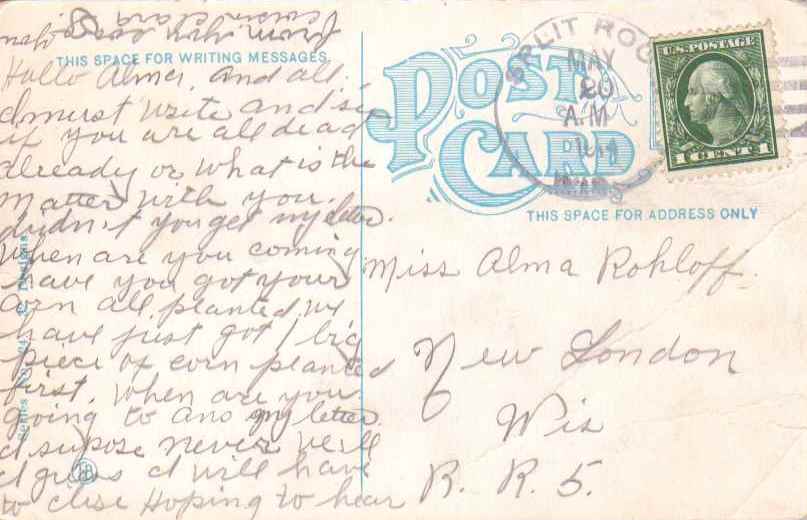 THIS SPACE FOR WRITING MESSAGES.
Hallo Alma, and all.
I must write and see
if you are all dead
already or what is the
matter with you.
didn't you get my letter.
When are you coming
have you got your
corn all planted. We
have just got 1 big
piece of corn planted
first. When are you
going to ans my letter.
I supose never well
I guess I will have
to close Hoping to hear
from you soon
POST CARD
SPLIT ROC
MAY
20
A.M.
WIS
U.S. POSTAGE
1 CENT 1
THIS SPACE FOR ADDRESS ONLY
Miss Alma Rohloff.
New London
Wis
R. R. 5.
Series No.
Designs